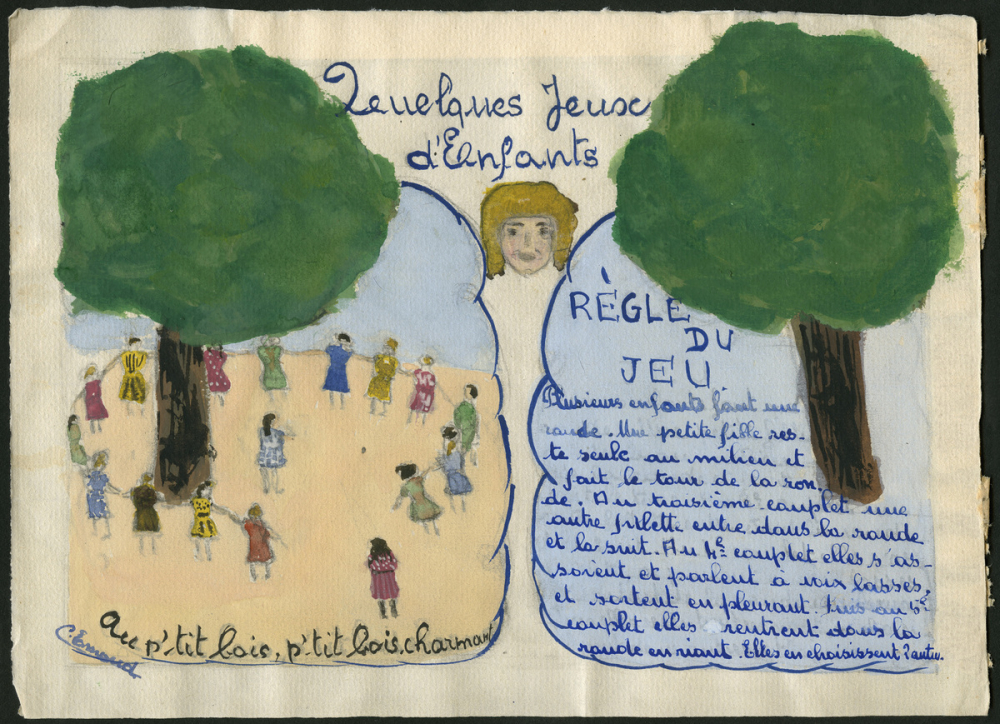 Quelques Jeux
d'Enfants
RÈGLE
DU
JEU
Plusieurs enfants font une
ronde. Une petite fille res-
te seule au milieu et
fait le tour de la ron
de. Au troisième couplet une
autre fillette entre dans la ronde
et la suit. Au 4e couplet elles s'as-
soient et parlent à voix basses,
et sortent en pleurant. Puis au 5e
couplet elles rentrent dans la
ronde en riant. Elles en choisissent 2 autres.
Au p'tit bois, p'tit bois charmant